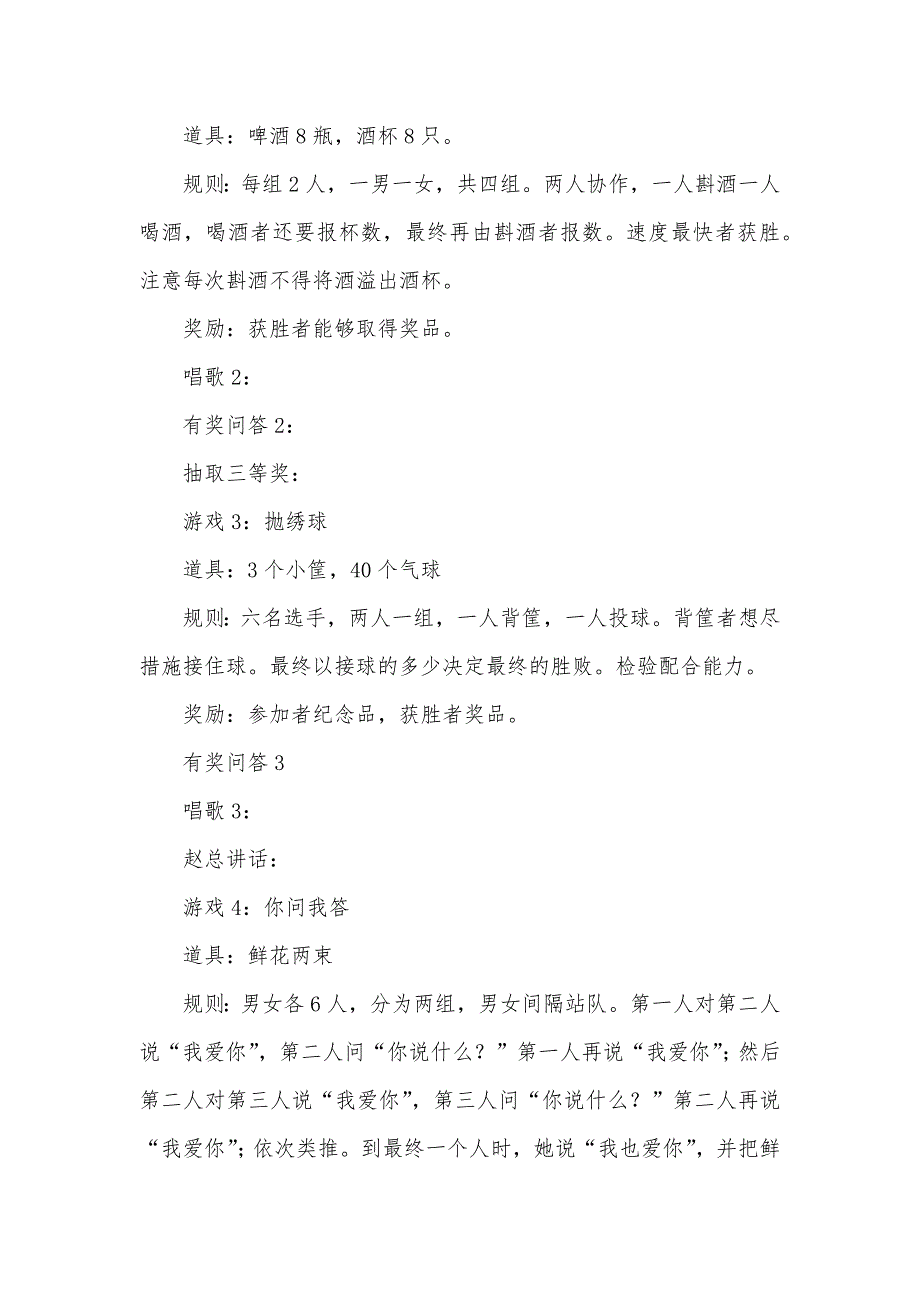 道具：啤酒 8 瓶，酒杯 8 只。
规则：每组 2 人，一男一女，共四组。两人协作，一人斟酒一人
喝酒，喝酒者还要报杯数，最终再由斟酒者报数。速度最快者获胜。
注意每次斟酒不得将酒溢出酒杯。
奖励：获胜者能够取得奖品。
唱歌 2：
有奖问答 2：
抽取三等奖：
游戏 3：抛绣球
道具：3 个小筐，40 个气球
规则：六名选手，两人一组，一人背筐，一人投球。背筐者想尽
措施接住球。最终以接球的多少决定最终的胜败。检验配合能力。
奖励：参加者纪念品，获胜者奖品。
有奖问答 3
唱歌 3：
赵总讲话：
游戏 4：你问我答
道具：鲜花两束
规则：男女各 6 人，分为两组，男女间隔站队。第一人对第二人
说“我爱你”，第二人问“你说什么？”第一人再说“我爱你”；然后
第二人对第三人说“我爱你”，第三人问“你说什么？”第二人再说
“我爱你”；依次类推。到最终一个人时，她说“我也爱你”，并把鲜